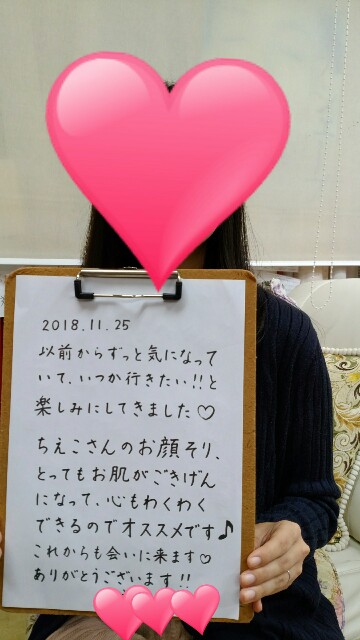 2018.11.25
以前からずっと気になって
いて、いつか行きたい!!と
楽しみにしてきました♡
ちえこさんのお顔そり、
とってもお肌がごきげん
になって、心もわくわく
できるのでオススメです♪
これからも会いに来ます♡
ありがとうございます!!